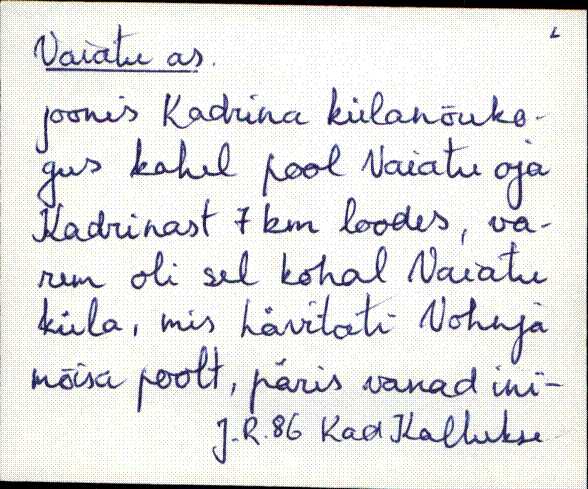 Vaiatu as.
joonis Kadrina külanõuko-
gus kahel pool Vaiatu oja
Kadrinast 7 km loodes, va-
rem oli sel kohal Vaiatu
küla, mis hävitati Vohnja
mõisa poolt, päris vanad ini-
J.R. 86 Kad Kallukse